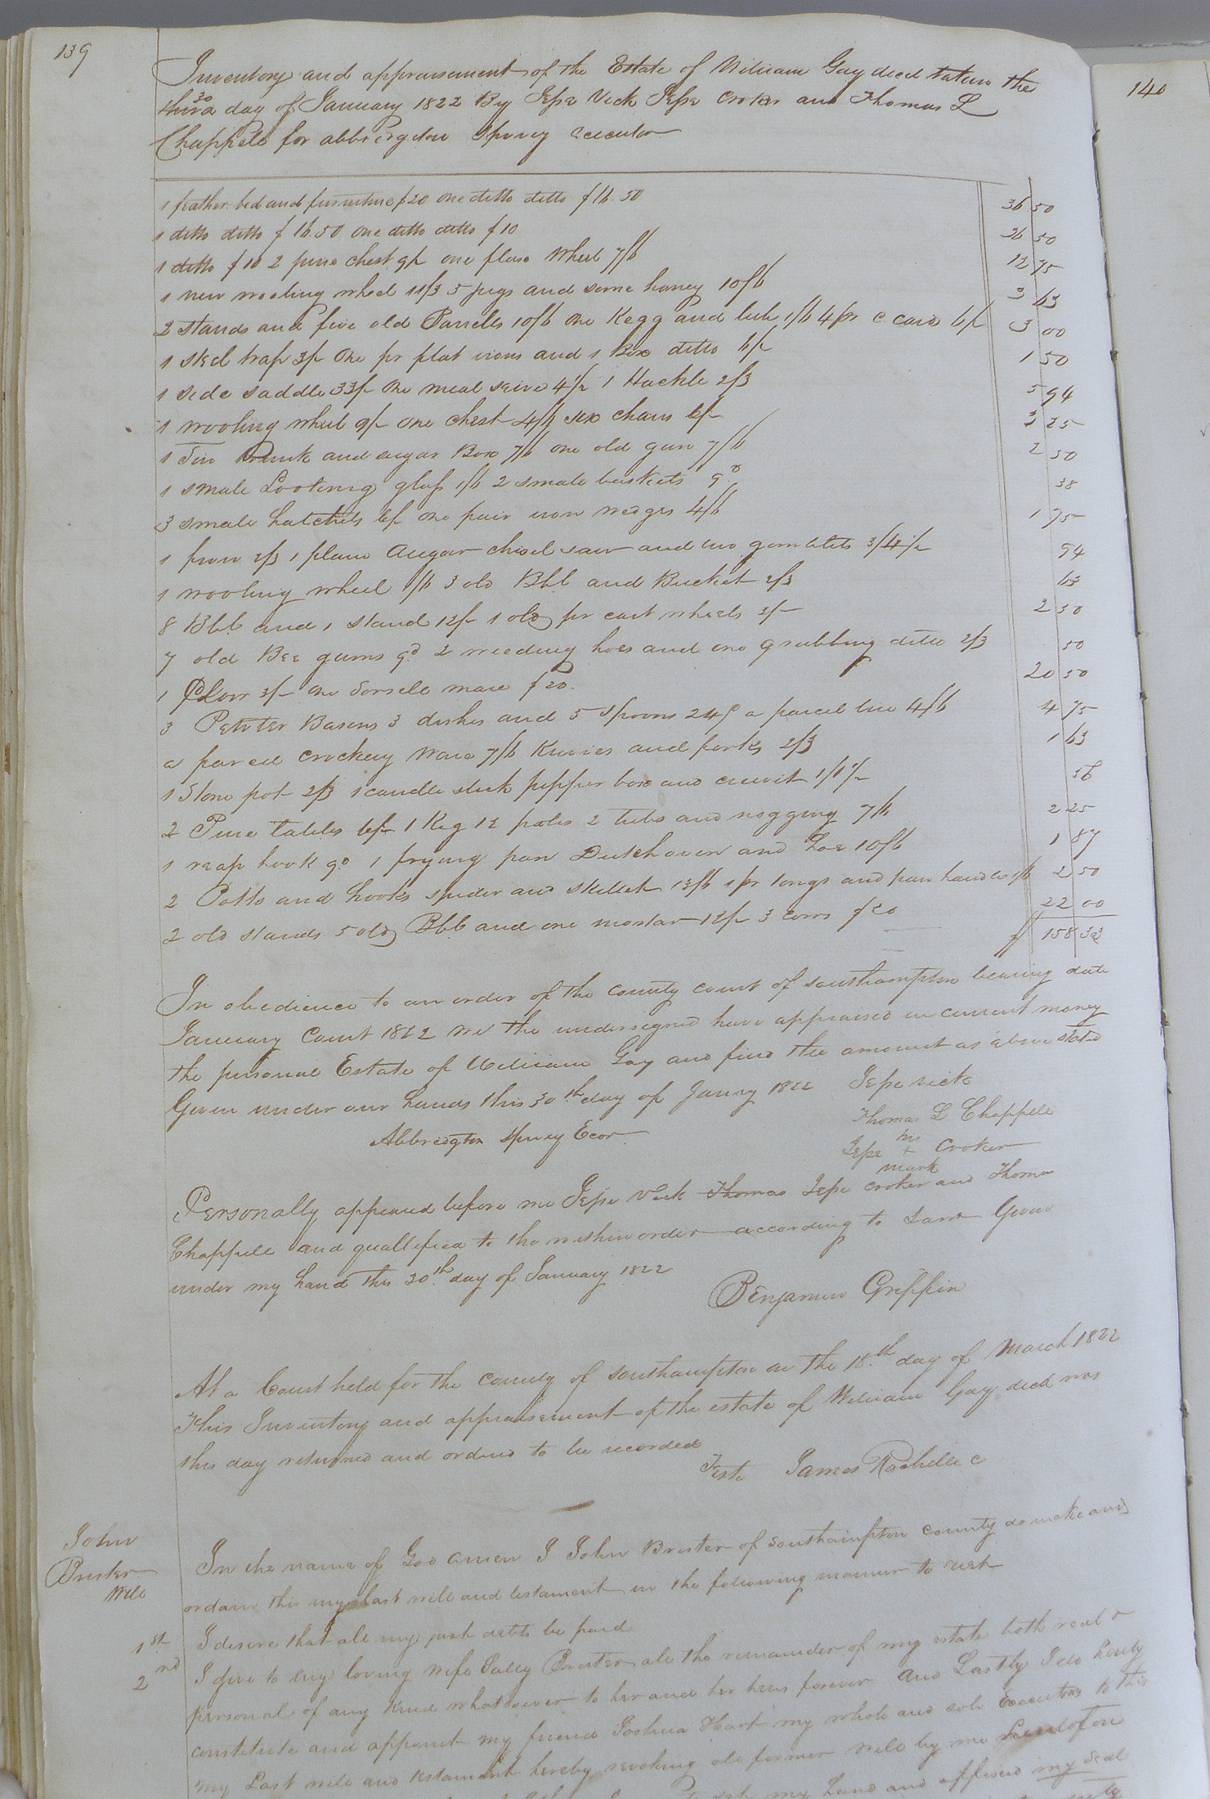 139
140
Inventory and appraisement of the Estate of William Gay decd taken the
30 day of January 1822 By Jesse Vick Jesse Croker and Thomas L
Chappell for Abbregton Spivey Executor
1 feather bed and furniture $20 one ditto ditto $16.50 36 50
1 ditto ditto $16.50 one ditto ditto $10 26 50
1 ditto $10 2 pine chest 9/ one flax Wheel 7/6 12 75
1 new wooling wheel 11/3 5 jugs and some honey 10/6 3 63
2 stands and five old Barrels 10/6 one Kegg and 1/6 4 pr c cards 6/ 3 00
1 steel trap 3/ one pr flat irons and 1 Box ditto 6/ 1 50
1 side saddle 33/ one meal seive 1 Hackle 2/3 5 94
1 wooling wheel 9/ one chest 4/6 six chairs 6/ 3 25
1 Tin Trunk and sugar Box 7/6 one old gun 7/6 2 50
1 smale Looking glass 1/6 2 smale baskets 9d 38
3 smale hatchets 6/ one pair iron wedges 4/6 1 75
1 frow 2/3 1 plane Augar chisel saw and two gomblets 94
1 wooling wheel 1/6 3 old Bbl and Bucket 2/3 63
8 Bbl and 1 stand 12/ 1 old pr cart wheels 3/ 2 50
7 old Bee gums 9d 2 weeding hoes and one grubbing ditto 2/3 50
1 Plow 3/ one Sorrele mare $20. 20 50
3 Pewter Basons 3 dishes and 5 spoons 24/ a parcel tin 4/6 4 75
a parcel crockery ware 7/6 Knives and forks 2/3 1 63
1 Stone pot 2/3 1 candle stick pepper box and cruit 56
2 Pine tables 6/ 1 Keg 12 plates 2 tubs and noggin 7/6 2 25
1 reap hook 9d 1 frying pan Dutchoven and hoe 10/6 1 87
2 Potts and hooks spider and skillet 13/6 1 pr tongs and pan handle 1/6 2 50
2 old stands 5 old Bbl and one mortar 12/ 3 cows $20 22 00
$ 158 33
In obedience to an order of the county court of Southampton bearing date
January Court 1822 we the undersigned have appraised in current money
the personal Estate of William Gay and find the amount as above stated
Given under our hands this 30th day of Jany 1822 Jesse Vick
Thomas L Chappell
Abbregton Spivey Exor.
his
Jesse + Croker
mark
Personally appeared before me Jesse Vick Thomas Jesse Croker and Thomas
Chappell and quallified to the within order according to Law Given
under my hand this 30th day of January 1822
Benjamin Griffin
At a Court held for the County of Southampton on the 18th day of March 1822
This Inventory and appraisement of the estate of William Gay decd was
this day returned and ordered to be recorded
Teste James Rochelle C
John
Brister
Will
In the name of God amen I John Brister of Southampton County do make and
ordain this my last will and testament in the following manner to wit
1st I desire that all my just debts be paid
2nd I give to my loving wife Salley Brister all the remainder of my estate both real &
personal of any kind whatsoever to her and her heirs forever And Lastly I do hereby
constitute and appoint my friend Joshua Hart my whole and sole Executor to this
my Last will and testament hereby revoking all former wills by me
my hand and affixed my seal